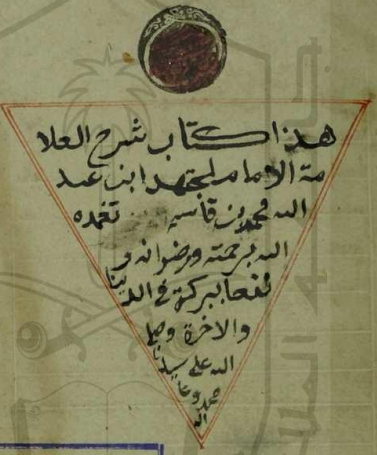 هذا كتاب شرح العلا
مة الامام لمجتهد ابن عبد
الله محمد بن قاسم تغمده
الله برحمته ورضوانه و
نفعنا ببركته في الدنيا
والاخرة وصلى
الله على سيدنا
محمد وعلى
اله